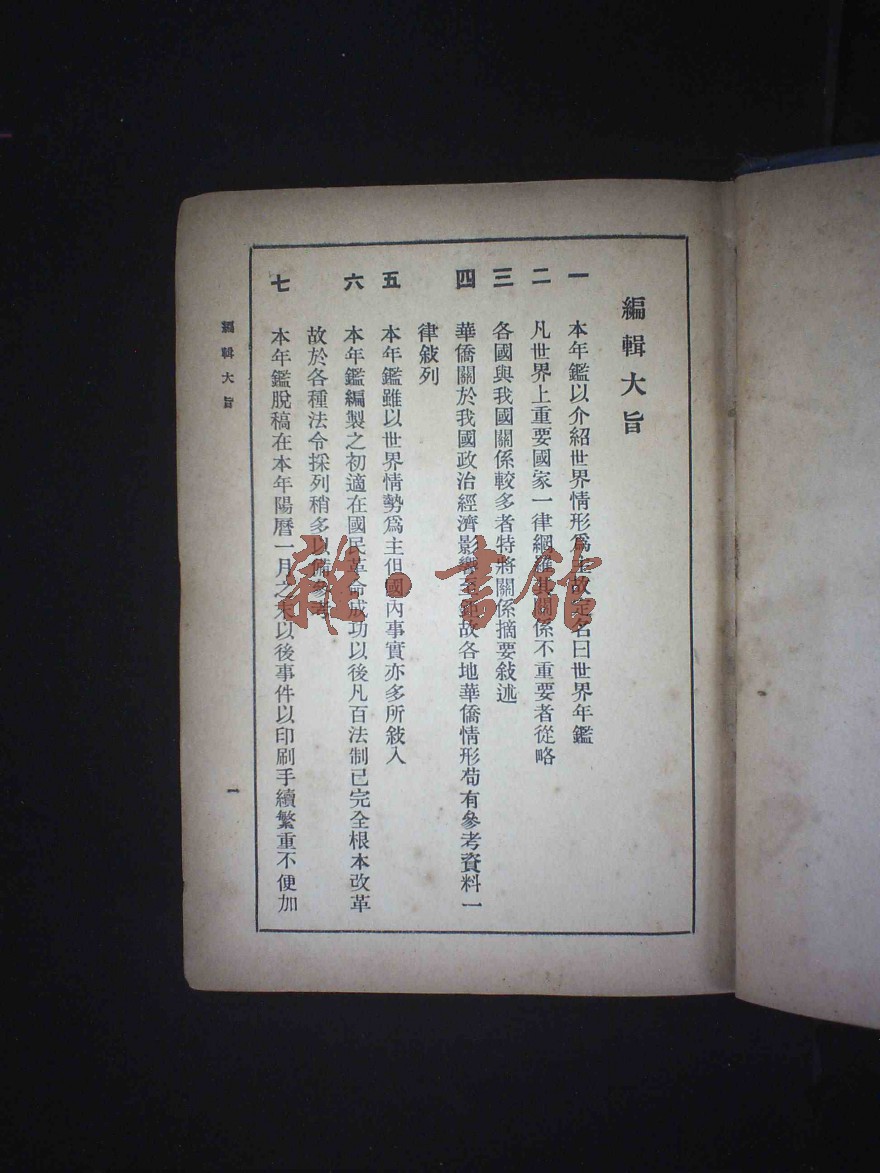 編輯大旨
一 本年鑑以介紹世界情形爲主故定名曰世界年鑑
二 凡世界上重要國家一律網羅其關係不重要者從略
三 各國與我國關係較多者特將關係摘要敍述
四 華僑關於我國政治經濟影響至鉅故各地華僑情形苟有參考資料一
律敍列
五 本年鑑雖以世界情勢爲主但國內事實亦多所敍入
六 本年鑑編製之初適在國民革命成功以後凡百法制已完全根本改革
故於各種法令採列稍多以備參考
七 本年鑑脫稿在本年陽曆一月之末以後事件以印刷手續繁重不便加
編輯大旨
一
雜·書館